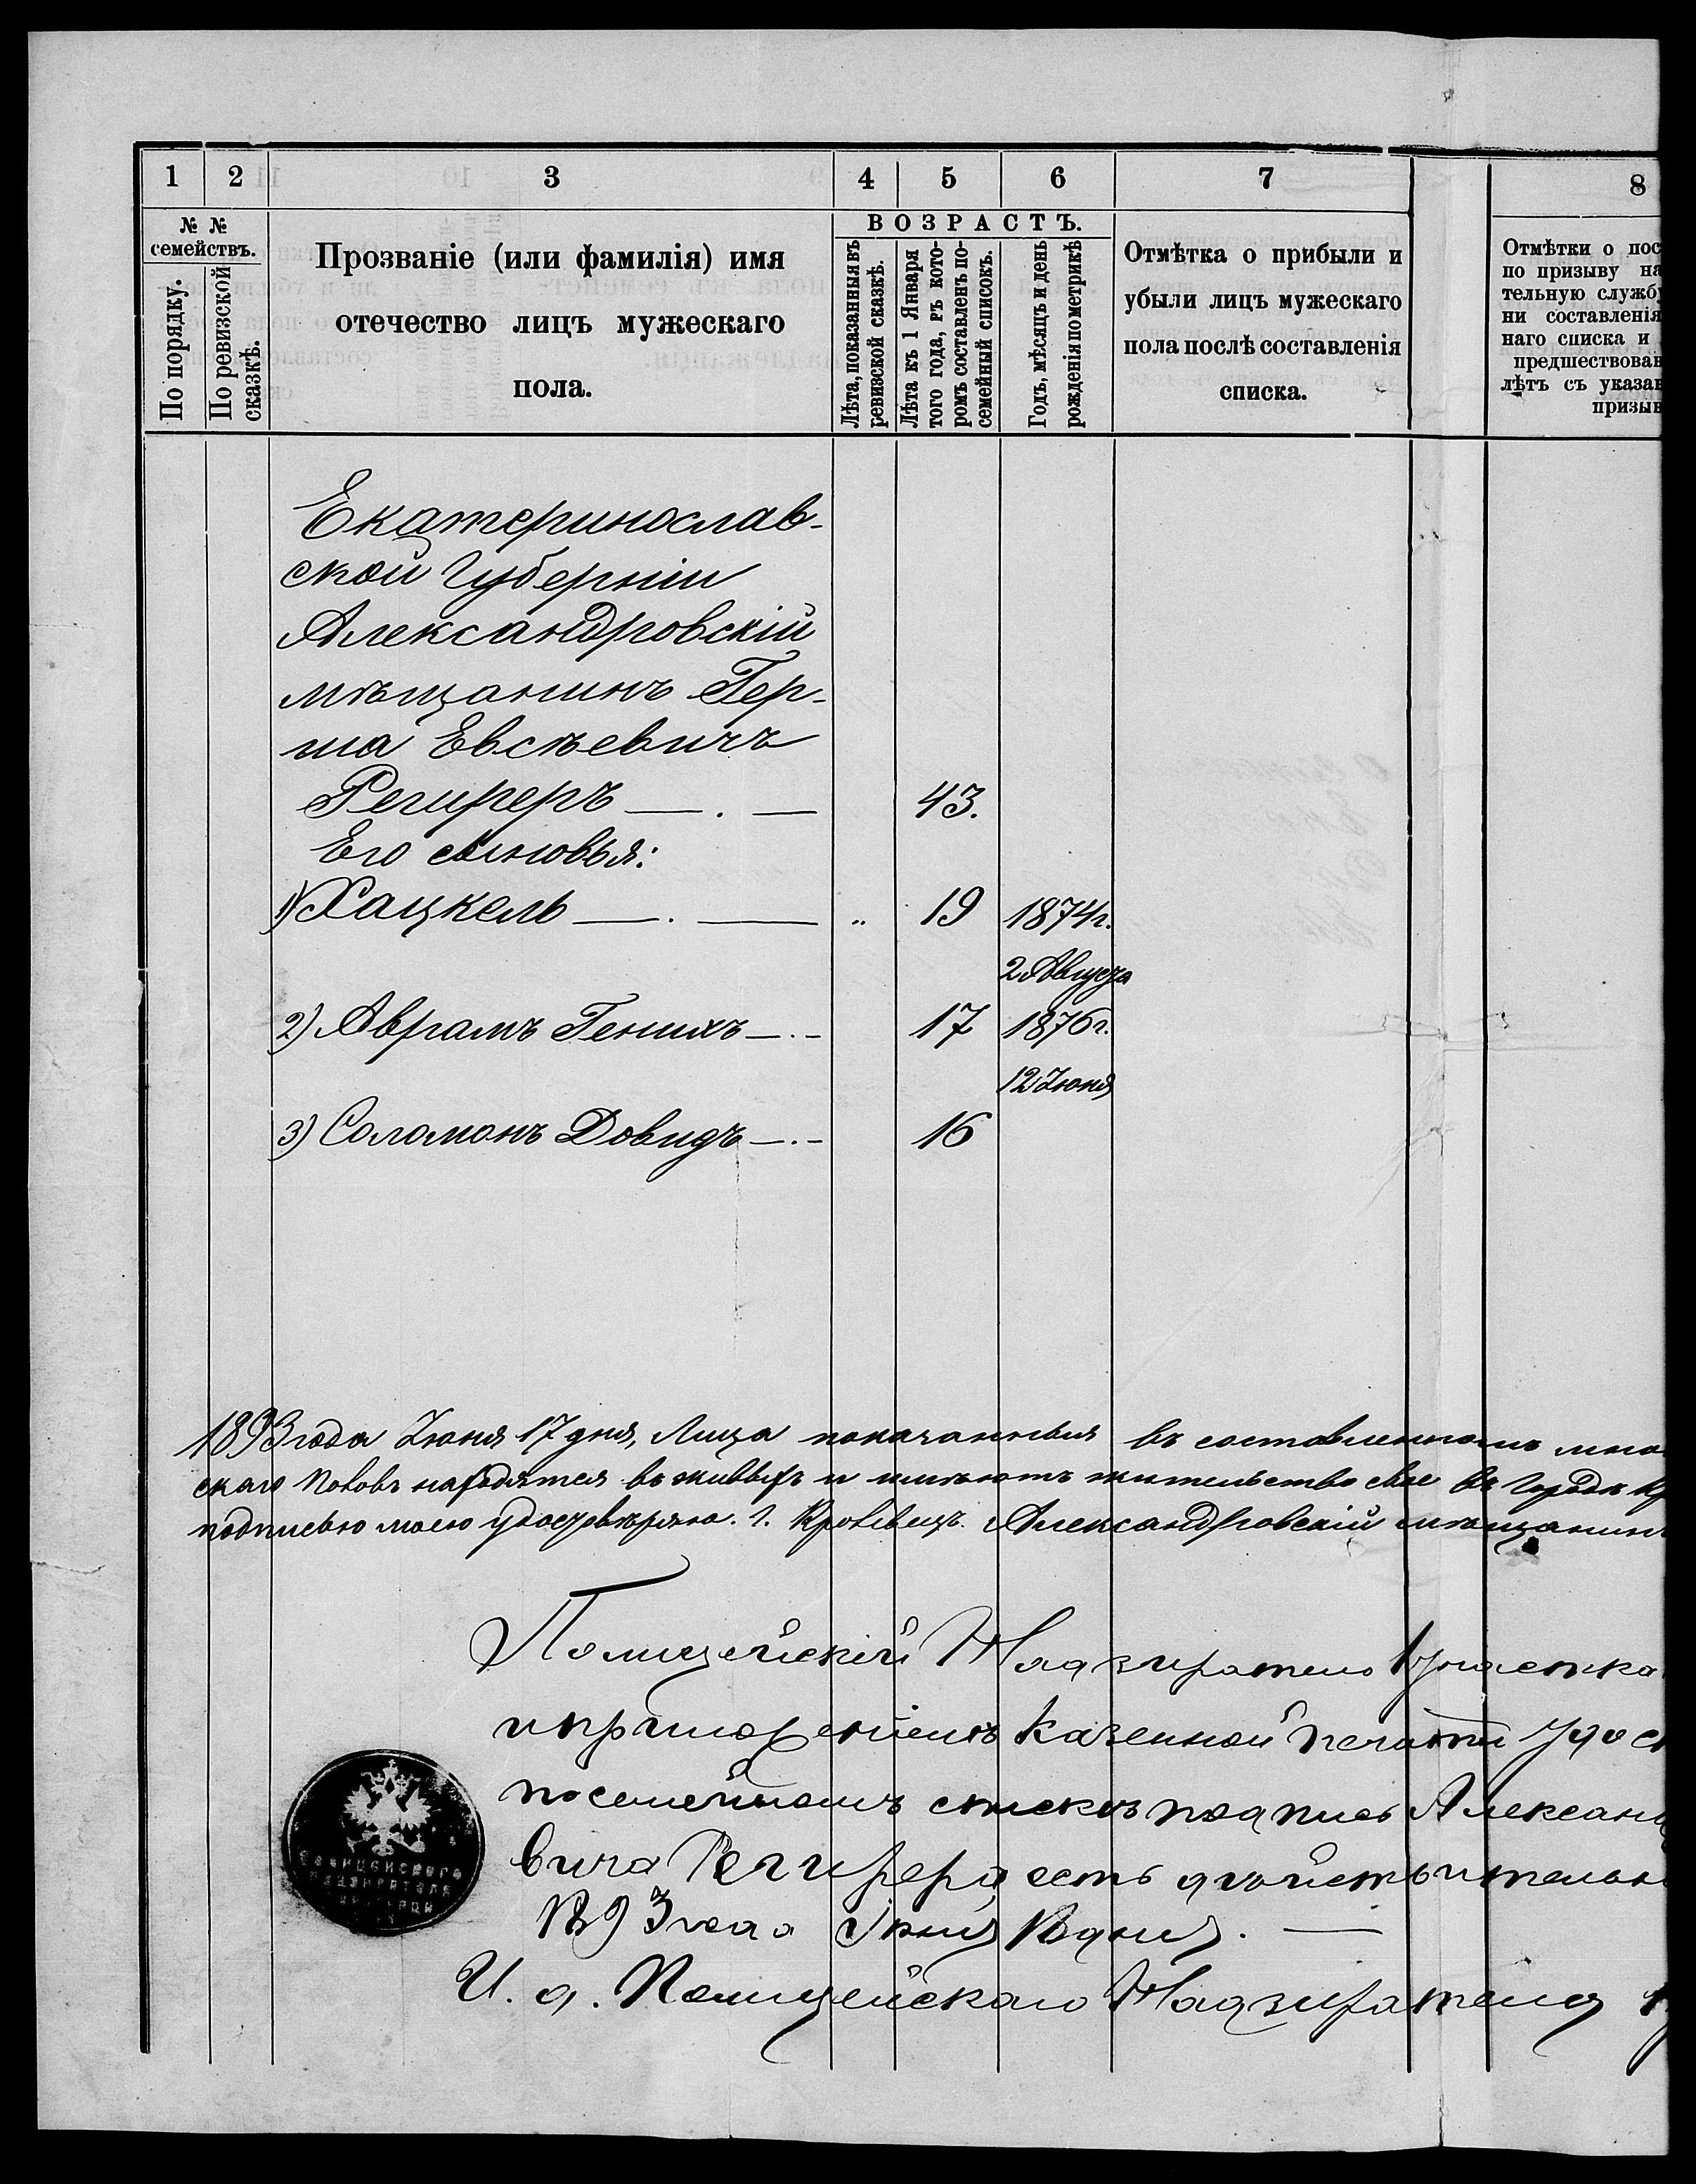 1 2 3 4 5 6 7 8
№ №
семействъ.
По порядку.
По ревизской
сказкѣ.
Прозваніе (или фамилія) имя
отечество лицъ мужескаго
пола.
ВОЗРАСТЪ.
Лѣта, показанныя въ
ревизской сказкѣ.
Лѣта къ 1 Января
того года, въ кото-
ромъ составленъ по-
семейный списокъ.
Годъ, мѣсяцъ и день
рожденія по метрикѣ
Отмѣтка о прибыли и
убыли лицъ мужескаго
пола послѣ составленія
списка.
Отмѣтки о пос
по призыву на
тельную службу
ни составленія
наго списка и
предшествован
лѣтъ съ указан
призыв
Екатеринослав-
ской Губерніи
Александровскій
мѣщанинъ Гер-
ша Евсѣевичъ
Региреръ — . — 43.
Его сыновья:
1) Хацкель — . — „ 19 1874 г.
2 Августа
2) Аврамъ Генихъ — . – 17 1876 г.
12 Июня
3) Соломонъ Довидъ — . – 16
1893 года Июня 17 дня, Лица показанныя въ составленномъ мно
скаго половъ находятся въ живыхъ и имѣютъ жительство свое въ Городѣ Кр
подписью моею удостовѣряю. г. Кролевецъ. Александровскій мѣщанин
Полицейскій Надзиратель 1 участка
и приложеніемъ казенной печати удос
посемейномъ спискѣ подпись Александ
вича Регирера есть дѣйствительн
1893 года Іюня 18 дня. —
И. д. Полицейскаго Надзирателя 1
Полицейского
Надзирателя